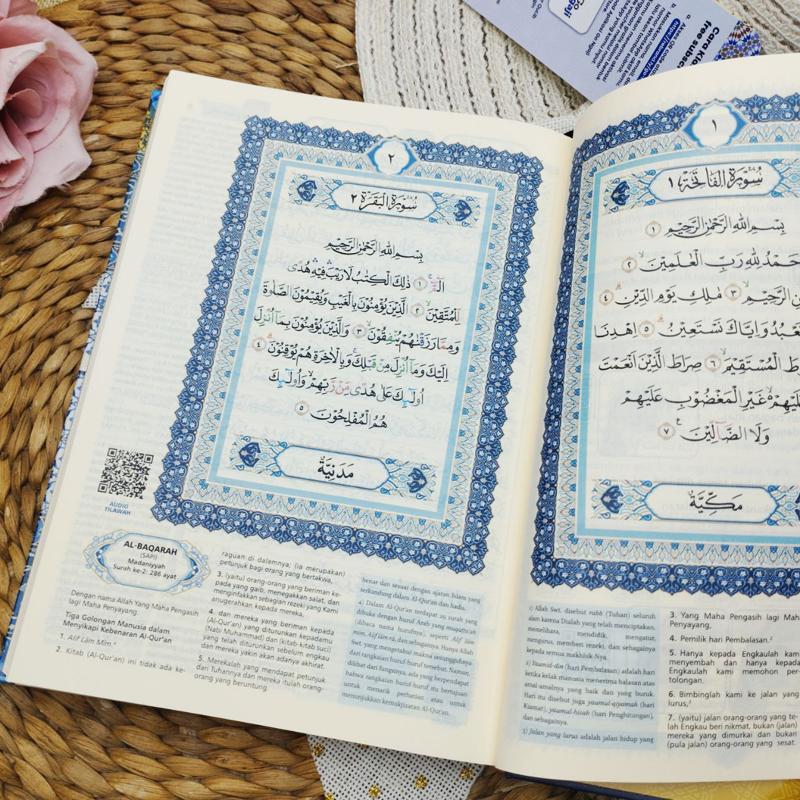 ١
سُورَةُ الْفَاتِحَةِ ١
بِسْمِ اللّٰهِ الرَّحْمٰنِ الرَّحِيْمِ ١
حَمْدُ لِلّٰهِ رَبِّ الْعٰلَمِيْنَ ٢
الرَّحِيْمِ ٣ مٰلِكِ يَوْمِ الدِّيْنِ ٤
نَعْبُدُ وَاِيَّاكَ نَسْتَعِيْنُ ٥ اِهْدِنَا
الْمُسْتَقِيْمَ ٦ صِرَاطَ الَّذِيْنَ اَنْعَمْتَ
عَلَيْهِمْ غَيْرِ الْمَغْضُوْبِ عَلَيْهِمْ
وَلَا الضَّاۤلِّيْنَ ٧
مَكِّيَّةٌ
i) Allah Swt. disebut rabb (Tuhan) seluruh
alam karena Dialah yang telah menciptakan,
memelihara, mendidik, mengatur,
mengurus, memberi rezeki, dan sebagainya
kepada semua makhluk-Nya.
2) Yaumid-dīn (hari Pembalasan) adalah hari
ketika kelak manusia menerima balasan atas
amal-amalnya yang baik dan yang buruk.
Hari itu disebut juga yaumul-qiyamah (hari
Kiamat), yaumul-hisab (hari Penghitungan),
dan sebagainya.
3) Jalan yang lurus adalah jalan hidup yang
3. Yang Maha Pengasih lagi Maha
Penyayang,
4. Pemilik hari Pembalasan.²
5. Hanya kepada Engkaulah kami
menyembah dan hanya kepada
Engkaulah kami memohon per-
tolongan.
6. Bimbinglah kami ke jalan yang
lurus,³
7. (yaitu) jalan orang-orang yang te-
lah Engkau beri nikmat, bukan (jalan)
mereka yang dimurkai dan bukan
(pula jalan) orang-orang yang sesat.
٢
سُورَةُ الْبَقَرَةِ ٢
بِسْمِ اللّٰهِ الرَّحْمٰنِ الرَّحِيْمِ
الۤمّۤ ١ ذٰلِكَ الْكِتٰبُ لَا رَيْبَ فِيْهِ هُدًى
لِّلْمُتَّقِيْنَ ٢ الَّذِيْنَ يُؤْمِنُوْنَ بِالْغَيْبِ وَيُقِيْمُوْنَ الصَّلٰوةَ
وَمِمَّا رَزَقْنٰهُمْ يُنْفِقُوْنَ ٣ وَالَّذِيْنَ يُؤْمِنُوْنَ بِمَآ اُنْزِلَ
اِلَيْكَ وَمَآ اُنْزِلَ مِنْ قَبْلِكَ وَبِالْاٰخِرَةِ هُمْ يُوْقِنُوْنَ ٤
اُولٰۤىِٕكَ عَلٰى هُدًى مِّنْ رَّبِّهِمْ وَاُولٰۤىِٕكَ
هُمُ الْمُفْلِحُوْنَ ٥
مَدَنِيَّةٌ
AUDIO
TILAWAH
AL-BAQARAH
(SAPI)
Madaniyyah
Surah ke-2: 286 ayat
Dengan nama Allah Yang Maha Pengasih
lagi Maha Penyayang.
Tiga Golongan Manusia dalam
Menyikapi Kebenaran Al-Qur'an
1. Alif Lām Mīm.⁴
2. Kitab (Al-Qur'an) ini tidak ada ke-
raguan di dalamnya; (ia merupakan)
petunjuk bagi orang yang bertakwa,
3. (yaitu) orang-orang yang beriman ke-
pada yang gaib, menegakkan salat, dan
menginfakkan sebagian rezeki yang Kami
anugerahkan kepada mereka,
4. dan mereka yang beriman kepada
(Al-Qur'an) yang diturunkan kepadamu
(Nabi Muhammad) dan (kitab-kitab suci)
yang telah diturunkan sebelum engkau
dan mereka yakin akan adanya akhirat.
5. Merekalah yang mendapat petunjuk
dari Tuhannya dan mereka itulah orang-
orang yang beruntung.
benar dan sesuai dengan ajaran Islam yang
terkandung dalam Al-Qur'an dan hadis.
4) Dalam Al-Qur'an terdapat 29 surah yang
dibuka dengan huruf Arab yang terpisah-pisah
(dibaca nama hurufnya), seperti Alif lām
mīm, Alif lām rā, dan sebagainya. Hanya Allah
Swt. yang mengetahui makna sesungguhnya
dari rangkaian huruf-huruf tersebut. Namun,
dilihat dari fungsinya, ada yang berpendapat
bahwa rangkaian huruf-huruf itu bertujuan
untuk menarik perhatian atau untuk
menunjukkan kemukjizatan Al-Qur'an.
Cara Klo
free subscr